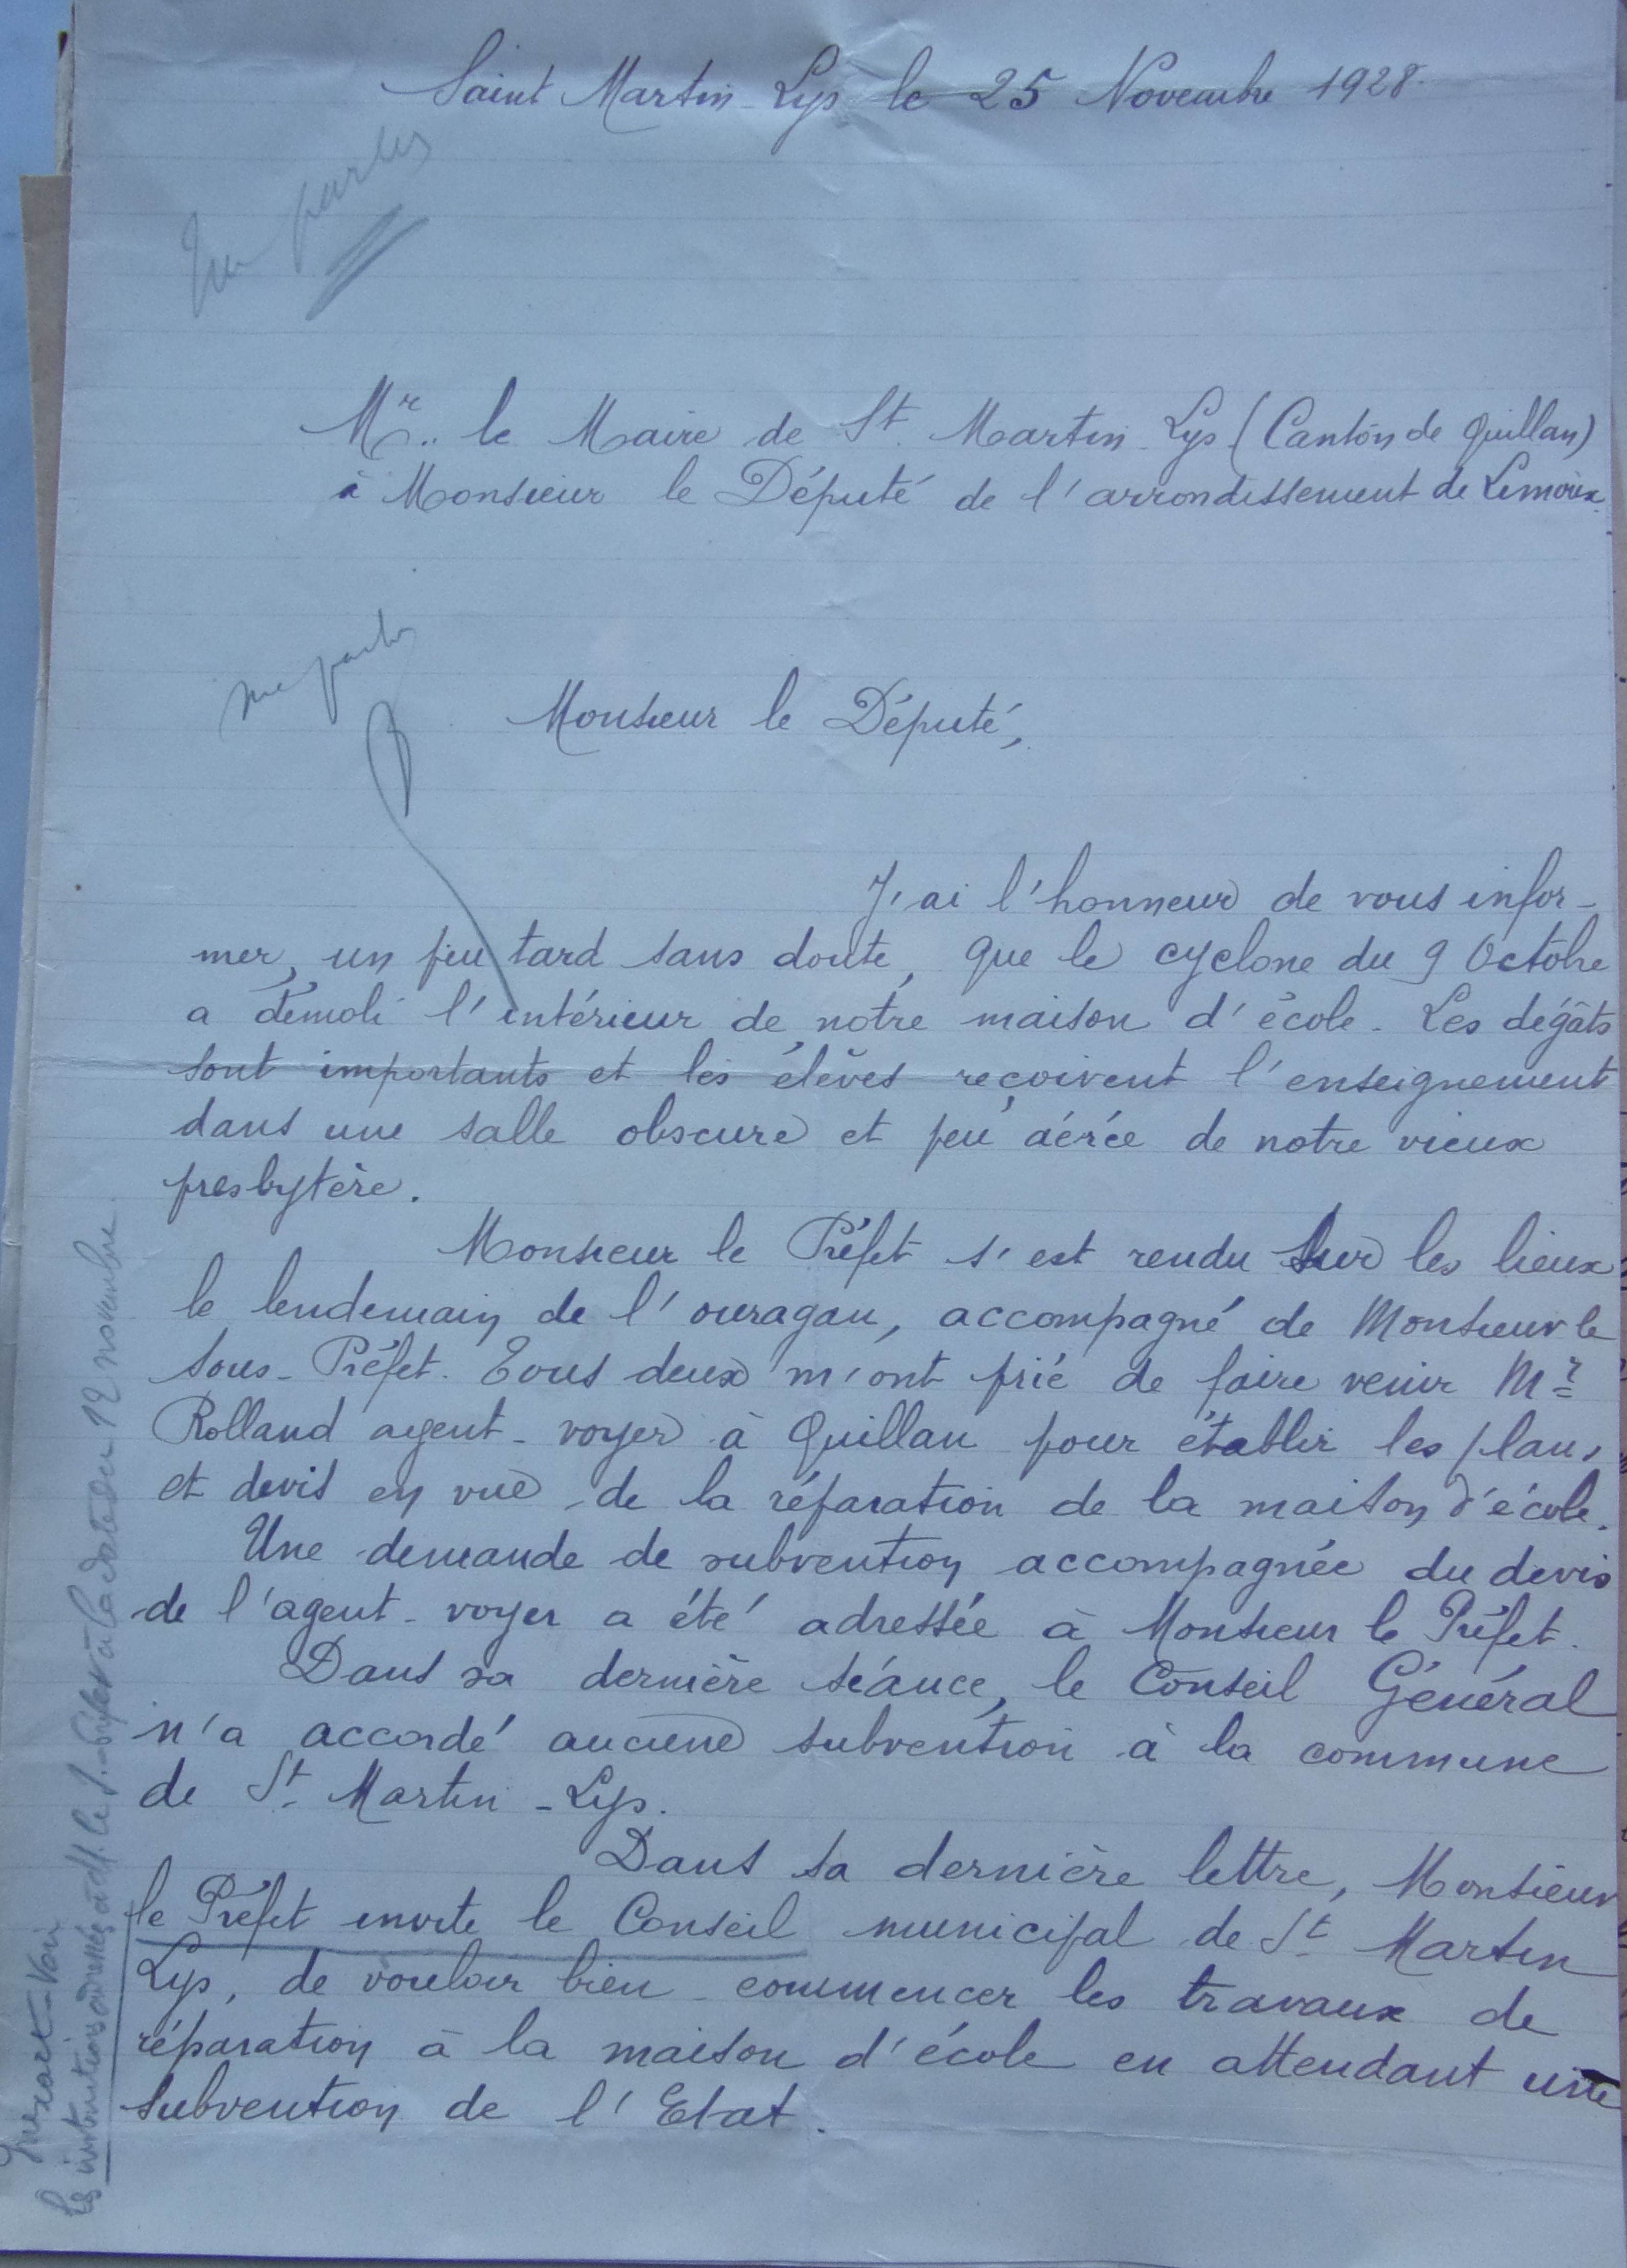 Saint Martin-Lys le 25 Novembre 1928.
M'en parler
Mr. le Maire de St. Martin-Lys (Canton de Quillan)
à Monsieur le Député de l'arrondissement de Limoux.
me parler
Monsieur le Député,
J'ai l'honneur de vous infor-
mer, un peu tard sans doute, que le cyclone du 9 Octobre
a démoli l'intérieur de notre maison d'école. Les dégâts
sont importants et les élèves reçoivent l'enseignement
dans une salle obscure et peu aérée de notre vieux
presbytère.
Monsieur le Préfet s'est rendu sur les lieux
le lendemain de l'ouragan, accompagné de Monsieur le
Sous-Préfet. Tous deux m'ont prié de faire venir Mr
Rolland agent-voyer à Quillan pour établir les plans
et devis en vue de la réparation de la maison d'école.
Une demande de subvention accompagnée du devis
de l'agent-voyer a été adressée à Monsieur le Préfet.
Dans sa dernière séance, le Conseil Général
n'a accordé aucune subvention à la commune
de St. Martin-Lys.
Dans sa dernière lettre, Monsieur
le Préfet invite le Conseil municipal de St Martin
Lys, de vouloir bien commencer les travaux de
réparation à la maison d'école en attendant une
subvention de l'Etat.
Inexact - Voir
les instructions adressées à M. le S. Préfet à la date du 12 novembre.